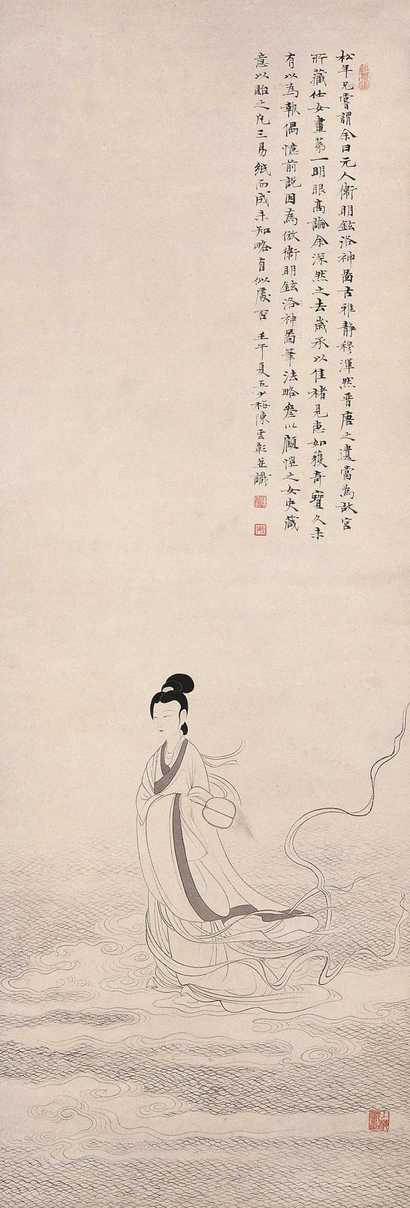 松年兄嘗謂余曰元人衛明鉉洛神圖古雅靜穆渾然晉唐之遺當為故宮
所藏仕女畫第一明眼高論余深然之去歲承以佳楮見惠如獲奇寶久未
有以為報偶憶前說因為倣衛明鉉洛神圖筆法略參以顧愷之女史箴
意以貽之凡三易紙而成未知略有似處否 壬午夏五少梅陳雲彰並識